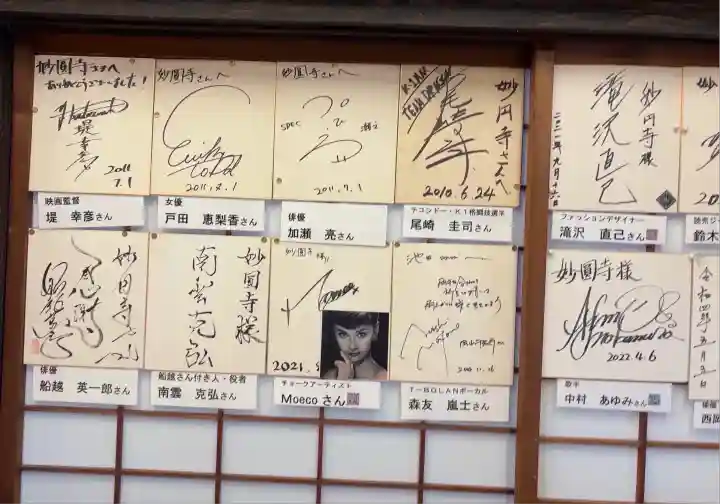 妙圓寺さんへ
ありがとうございました!
堤幸彦
2011
7.1
映画監督
堤 幸彦さん
妙圓寺さんへ
2011.7.1
女優
戸田 恵梨香さん
妙圓寺さんへ
SPEC
2011.7.1
俳優
加瀬 亮さん
K-1 MAX
TEAM DRAGON
妙円寺さんへ
2010.6.24
テコンドー・K1格闘技選手
尾崎 圭司さん
妙円寺様
滝沢直己
二〇二一年九月十六日
ファッションデザイナー
滝沢 直己さん
鈴木
妙円寺さん江
感謝
俳優
船越 英一郎さん
妙圓寺様
南雲克弘
船越さん付き人・役者
南雲 克弘さん
妙圓寺様
Moeco
2021.
チョークアーティスト
Moeco さん
T-BOLANボーカル
森友 嵐士さん
妙圓寺様
2022.4.6
歌手
中村 あゆみさん
令和四年五月五日
俳優
西岡